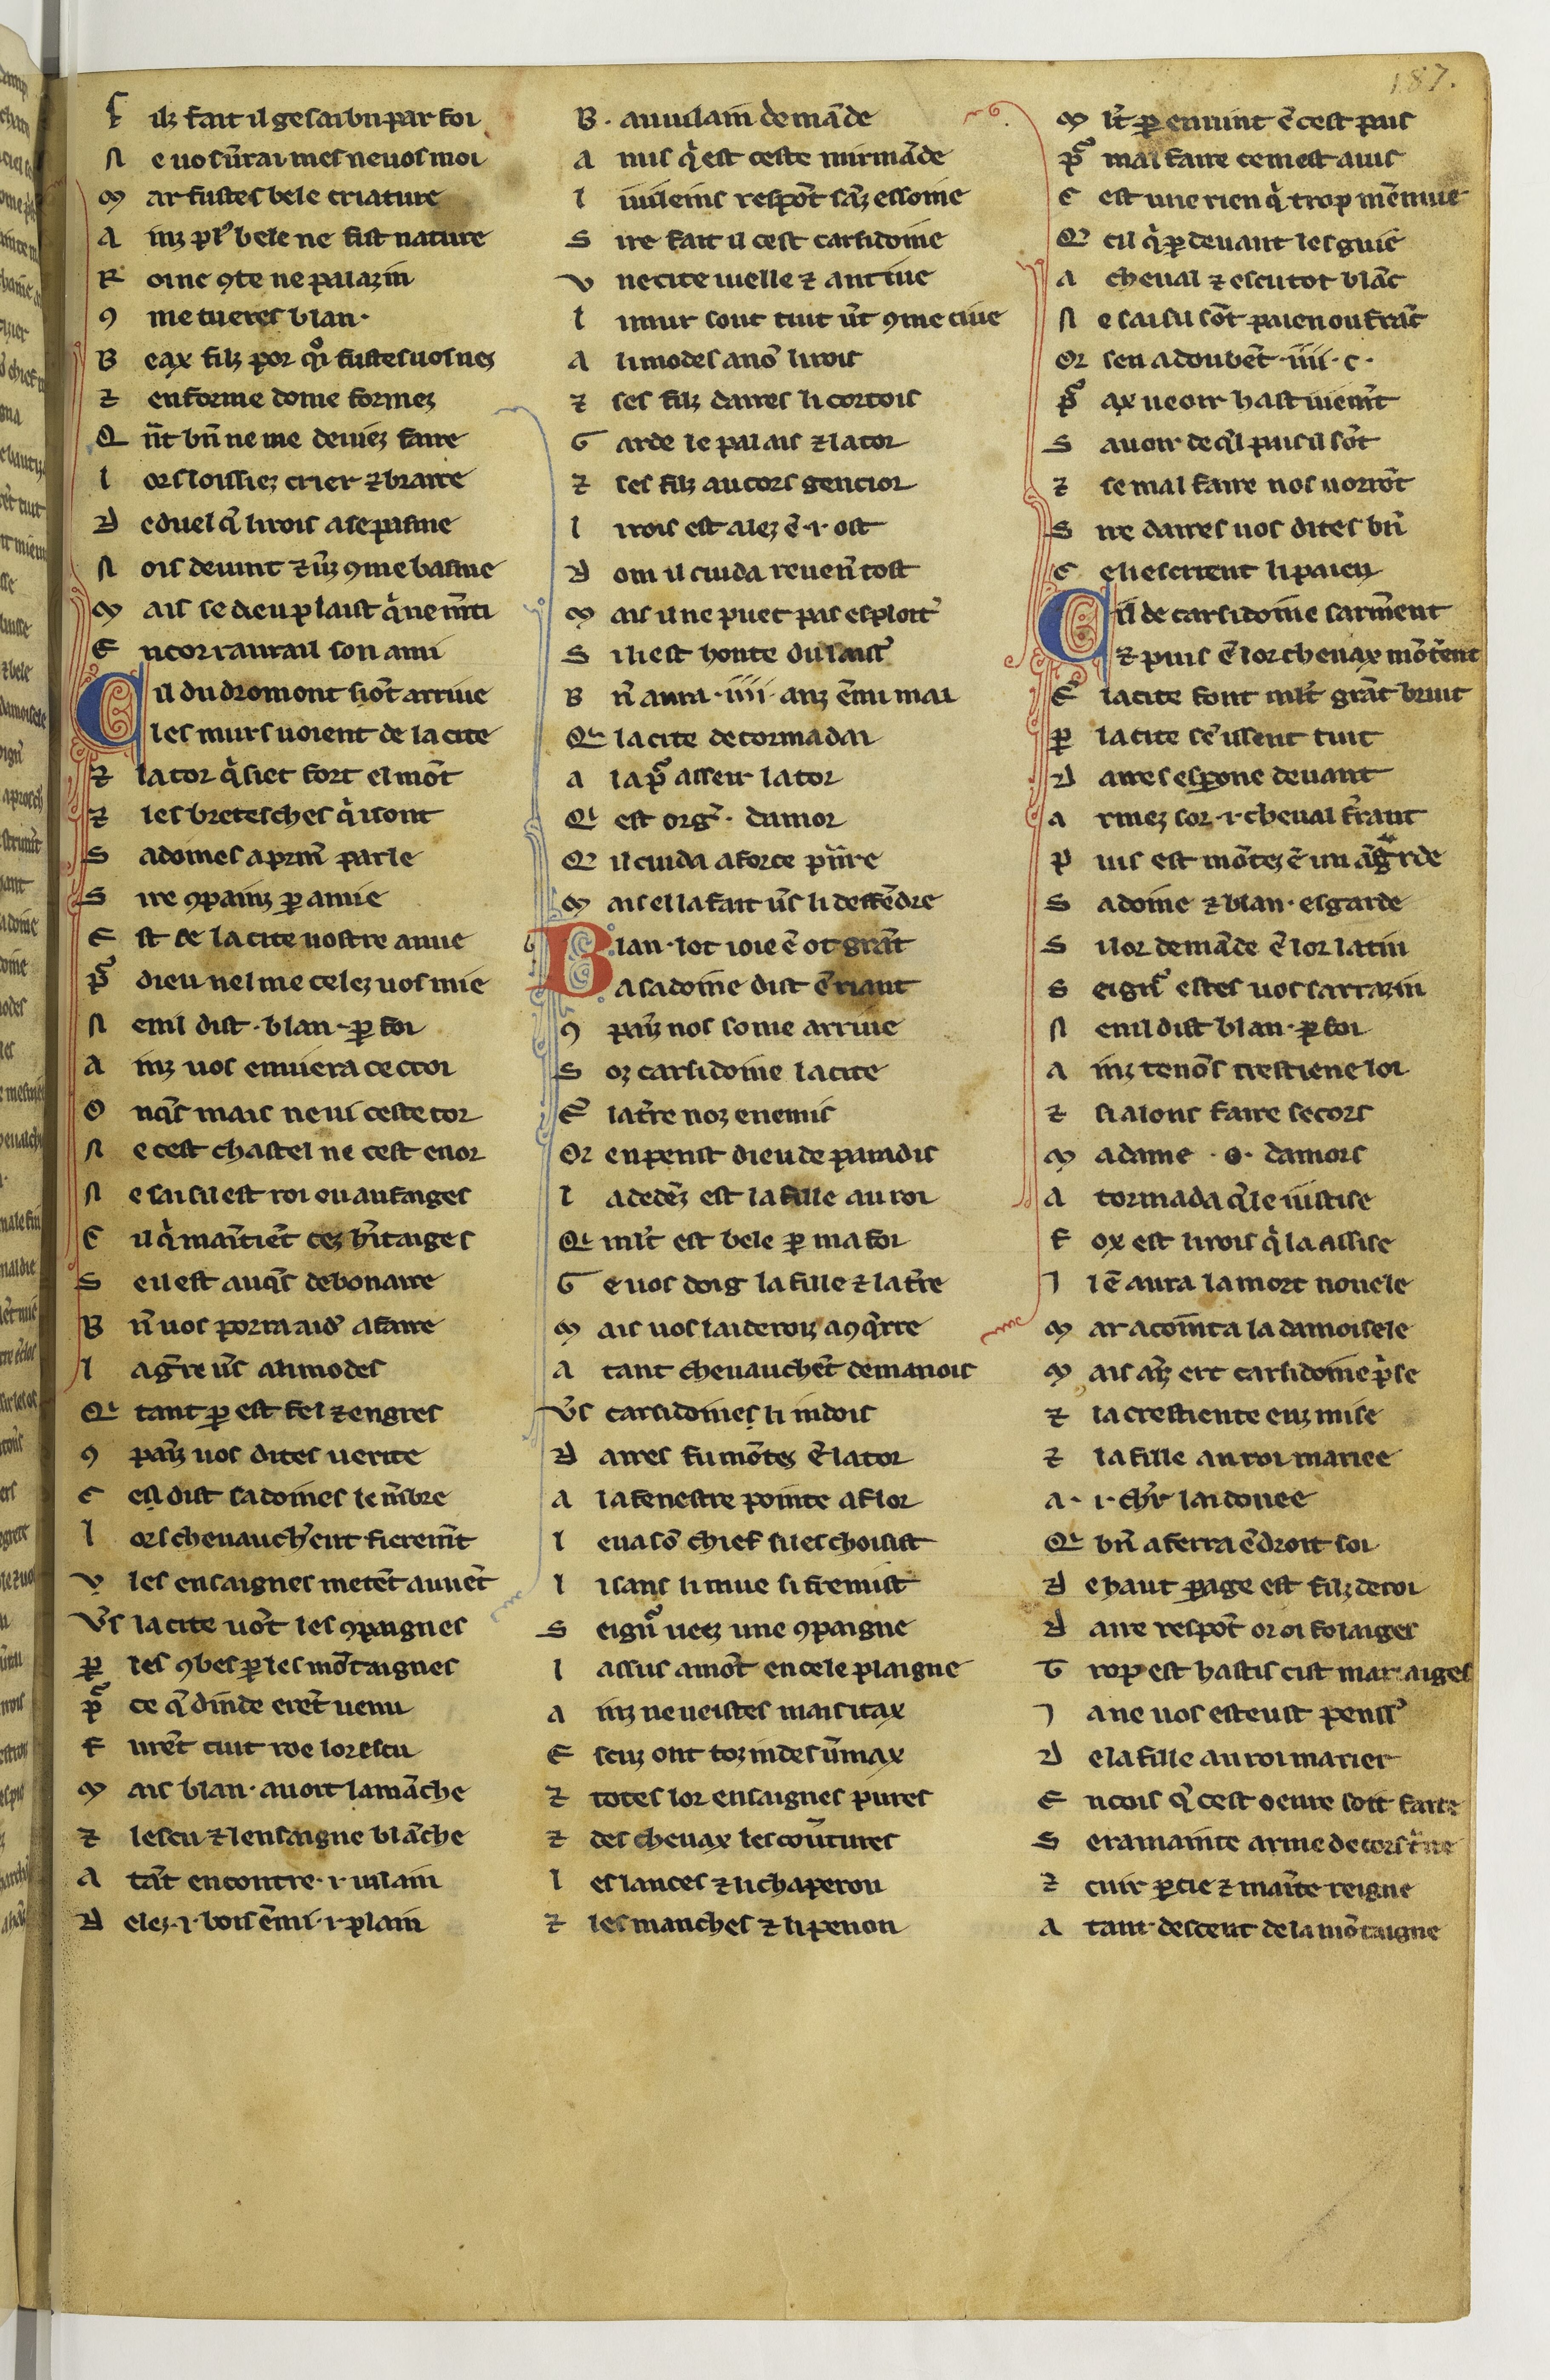 187.
F ilz fait il ge sai bn̄ par foi
N e vos v̄rai mes ne vos moi
M ar fustes bele criature
A inz pl᷒ bele ne fist nature
R oine ꝯte ne palazin
ꝯ me tu eres blan·
B eax filz por qͦi fustes vos nes
⁊ en forme dome formez
Q n̄t bn̄ ne me deviez faire
L ors loissiez crier ⁊ braire
D e duel qͥ li rois a se pasme
N ois devint ⁊ v̄iz ꝯme basme
M ais se dieu plaist qͥ ne m̄ti
E ncor raura il son ami
C il du dromont si ōt arrive
L es murs voient de la cite
⁊ la tor qͥ siet sort el mōt
⁊ les bretesches qͥ i sont
S adoines a prim̄ parle
S ire ꝯpainz ꝑ amie
E st ce la cite vostre amie
p̄ dieu nel me celez vos mie
N enil dist ·blan· ꝑ foi
A inz vos enviera ce croi
O nqͣs mais ne vi ceste tor
N e cest chastel ne cest enor
N e sai sil est roi ou aufaiges
C il qͥ maītiēt cez h̄itaiges
S e il est auqͣs debonaire
B n̄ vos porra aid᷒ a faire
L a gr̄re v̄s almodes
Qi tant ꝑ est fel ⁊ engres
ꝯ painz vos dites verite
C eu dist sadoines le m̄bre
L ors chevauch̄ent fierem̄t
V les ensaignes metēt au vēt
V̄s la cite vōt les ꝯpaignes
ꝑ les ꝯbes ꝑ les mōtaignes
p̄ ce qͥ dinde erēt venu
F urēt tuit roe lor escu
M ais blan· avoit la māche
⁊ lescu ⁊ lensaigne blāche
A tāt encontre ·i· vilain
D elez ·i· bois ēmi ·i· plain
B · au vilain demāde
A mis qͥ est ceste mirmāde
L i vileins respōt sāz essoine
S ire fait il cest carsidoine
V ne cite vielle ⁊ antive
L i mur sont tuit v̄t ꝯme cive
A limodes a nō li rois
⁊ ses filz daires li cortois
G arde le palais ⁊ la tor
⁊ ses filz au cors gencior
L i rois est alez ē ·i· ost
D om il cuida reven̄ tost
M ais il ne puet pas esploit᷒
S i li est honte du laiss᷒
B n̄ aura ·iiii· anz ēmi mai
Qi la cite de tormadai
A la p̄ asseir la tor
Qi est org᷒· damor
Q il cuida a force pn̄re
M ais el la fait v̄s li deffēdre
B lan· lot ioie ē ot grāt
A sadoine dist ē riant
ꝯ painz nos some arrive
S oz carsidoine la cite
Ē la t̄re noz enemis
Or en penst dieu de paradis
L a dedēz est la fille au roi
Qi ml̄t est bele ꝑ ma foi
G e vos doig la fille ⁊ la t̄re
M ais vos laideroiz a ꝯqͣrre
A tant chevauchēt demanois
V̄s carsidoines li indois
D aires fu mōtez ē la tor
A la fenestre pointe a flor
L eva sō chief si es choisist
L i sans li mue si fremist
S eign᷒ veez une ꝯpaigne
L assus amōt en cele plaigne
A inz ne veistes mais itax
E scuz ont toz indes v̄max
⁊ totes lor ensaignes pures
⁊ des chevax les cov̄tures
L es lances ⁊ li chaperon
⁊ les manches ⁊ li penon
M lt̄ ꝑ en vint ē cest pais
p̄ mal faire ce mest avis
C est une rien qͥ trop mēnuie
Q cil qͥ ꝑ devant les guie
A cheval ⁊ escu tot blāc
N e sai sil sōt paien ou frāc
Or sen adoubēt ·iiii· c·
p̄ ax veoir hastivem̄t
S avoir de ql̄ pais il sōt
⁊ se mal faire nos vorrōt
S ire daires vos dites bn̄
C e li escrient li paien
C il de carsidoine sarm̄ent
⁊ puis ē lor chevax mōtēent
Ē la cite font ml̄t grāt bruit
ꝑ la cite sē issent tuit
D aires espone devant
A rmez sor ·i· cheval ferant
P uis est mōtez ē un āgarde
S adoine ⁊ blan· esgarde
S i lor demāde ē lor latin
S eign᷒ estes vos sarrazin
N enil dist blan· ꝑ foi
A inz tenōs crestiene loi
⁊ si alons faire secors
M a dame ·o· damors
A tormada qͥ le iustise
F ox est li rois qͥ la assise
I l ē aura la mort novele
M ar acointa la damoisele
M ais ainz ert carsidoine pͥse
⁊ la crestiente enz mise
⁊ la fille au roi mariee
A · i· ch̄r lai donee
Qi bn̄ aferra ēdroit soi
D e haut ꝑage est filz de roi
D aire respōt or oi folaiges
T rop est hastis cist mariaiges
I a ne vos esteust penss᷒
D e la fille au roi marier
E ncois qͥ cest oevre soit faite
S era mainte arme de cors traite
⁊ cuir ꝑcie ⁊ maīte reigne
A tant descent de la mōtaigne